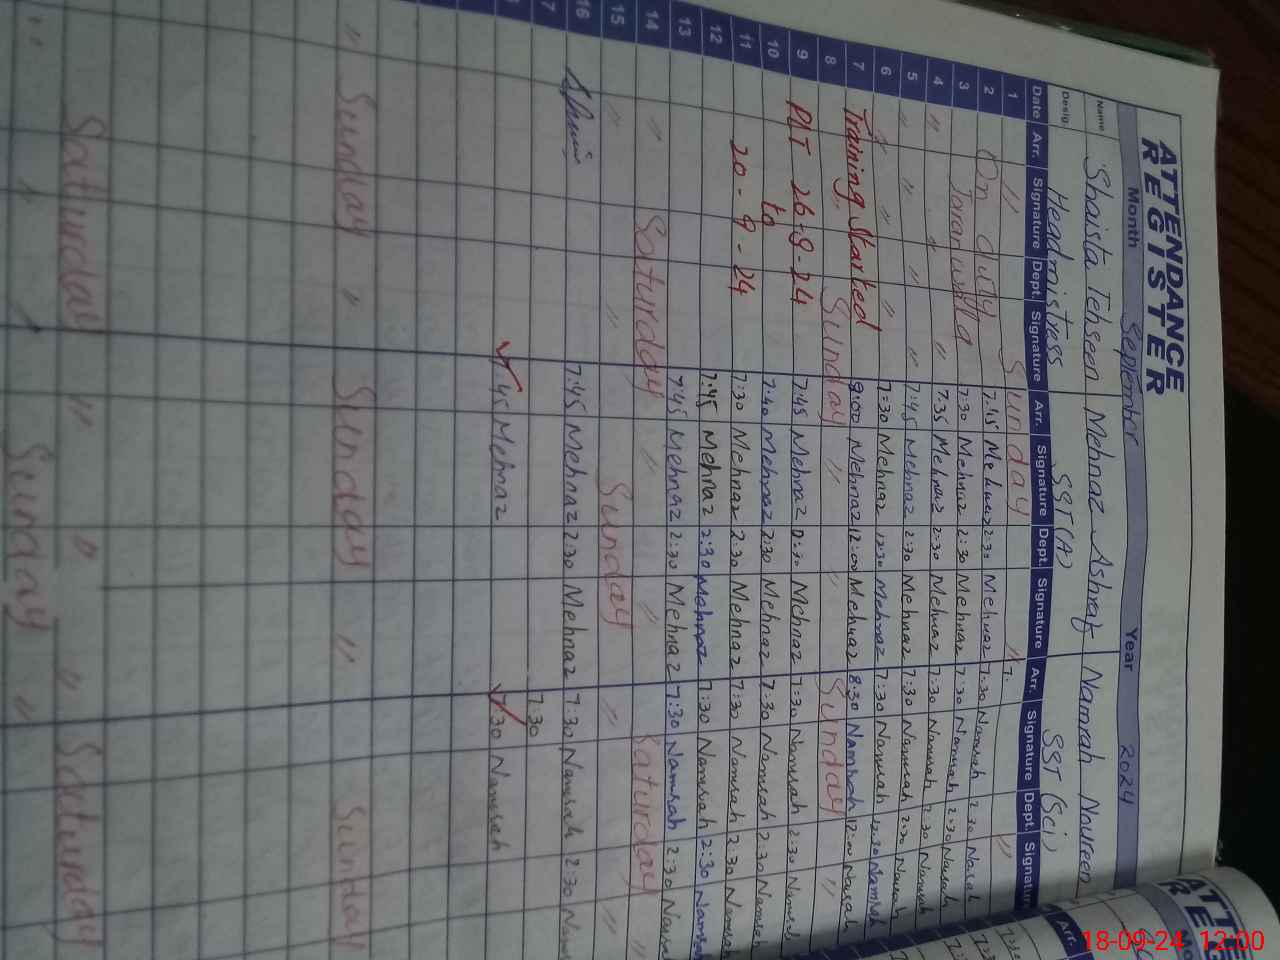 ATTENDANCE
REGISTER
Month September Year 2024
Name Shaista Tehseen Mehnaz Ashraf Namrah Noureen
Desig. Headmistress SST (A) SST (Sci)
Date Arr. Signature Dept. Signature Arr. Signature Dept. Signature Arr. Signature Dept. Signature
1 " Sunday " 7.
2 On duty 7:45 Mehnaz 2:30 Mehnaz 7:30 Namrah 2:30
3 Jaranwala 7:30 Mehnaz 2:30 Mehnaz 7:30 Namrah 2:30
4 " " " 7.35 Mehnaz 2:30 Mehnaz 7:30 Namrah 2:30 Namrah
5 " " " " 7:45 Mehnaz 2:30 Mehnaz 7:30 Namrah 2:30 Namrah
6 " " " 7:30 Mehnaz 12:30 Mehnaz 7:30 Namrah 12:30 Namrah
7 Training Started 8:00 Mehnaz 12:00 Mehnaz 8:30 Namrah 12:00 Namrah
8 Sunday " " Sunday "
9 26-8-24 7:45 Mehnaz Mehnaz 7:30 Namrah 2:30
10 to 7:40 Mehnaz 2:30 Mehnaz 7:30 Namrah 2:30 Namrah
11 20-9-24 7:30 Mehnaz 2:30 Mehnaz 7:30 Namrah 2:30 Namrah
12 7:45 Mehnaz 2:30 Mehnaz 7:30 Namrah 2:30 Namrah
13 7:45 Mehnaz 2:30 Mehnaz 7:30 Namrah 2:30 Namrah
14 " Saturday " " Saturday "
15 " " Sunday " "
16 7:45 Mehnaz 2:30 Mehnaz 7:30 Namrah 2:30
17 7:30
7:45 Mehnaz 7:30 Namrah
" Sunday " Sunday " Sunday
Saturday " " " Saturday
Sunday "
ATTE
RE
Arr.
18-09-24 12:00